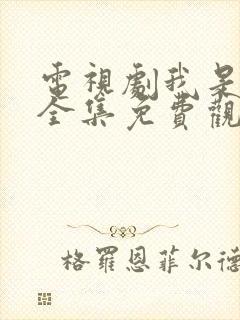 電視劇我是
全集免費觀
格羅恩菲尔德